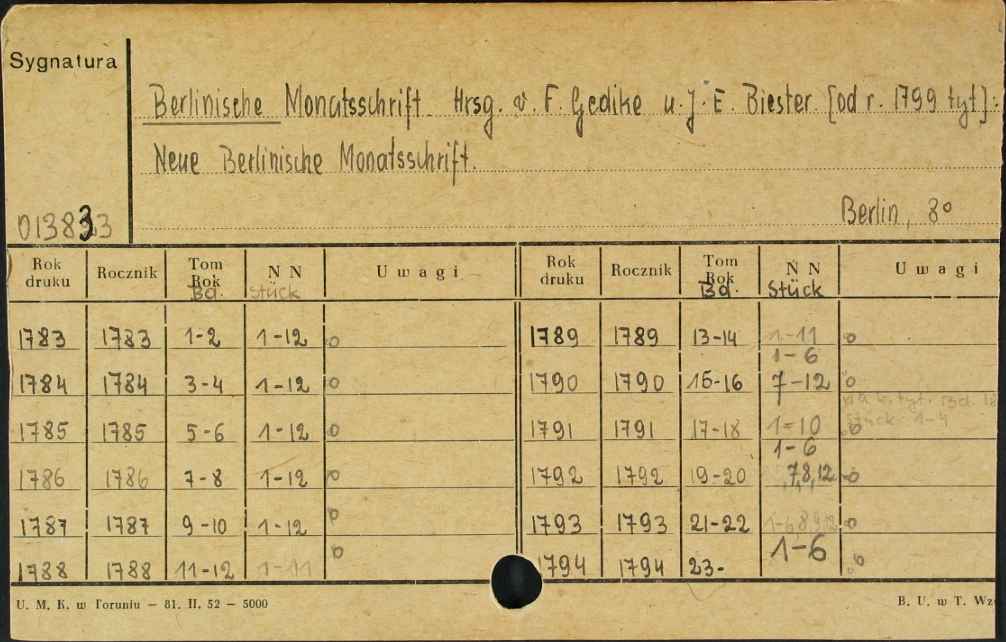 Sygnatura
Berlinische Monatsschrift. Hrsg. v. F. Gedike u. J. E. Biester. [od r. 1799 tyt]:
Neue Berlinische Monatsschrift.
013833
Berlin, 8°
Rok druku Rocznik Tom Rok Bd. N N Stück Uwagi Rok druku Rocznik Tom Rok Bd. N N Stück Uwagi
1783 1783 1-2 1-12 o 1789 1789 13-14 1-11 o
1-6
1784 1784 3-4 1-12 o 1790 1790 15-16 7-12 o
1785 1785 5-6 1-12 o 1791 1791 17-18 1-10 o
Stück 1-4
1-6
1786 1786 7-8 1-12 o 1792 1792 19-20 7,8,12 o
1787 1787 9-10 1-12 o 1793 1793 21-22 o
1788 1788 11-12 1-11 o 1794 1794 23- 1-6 o
U. M. K. w Toruniu – 81. II. 52 – 5000
B. U. w T. Wz